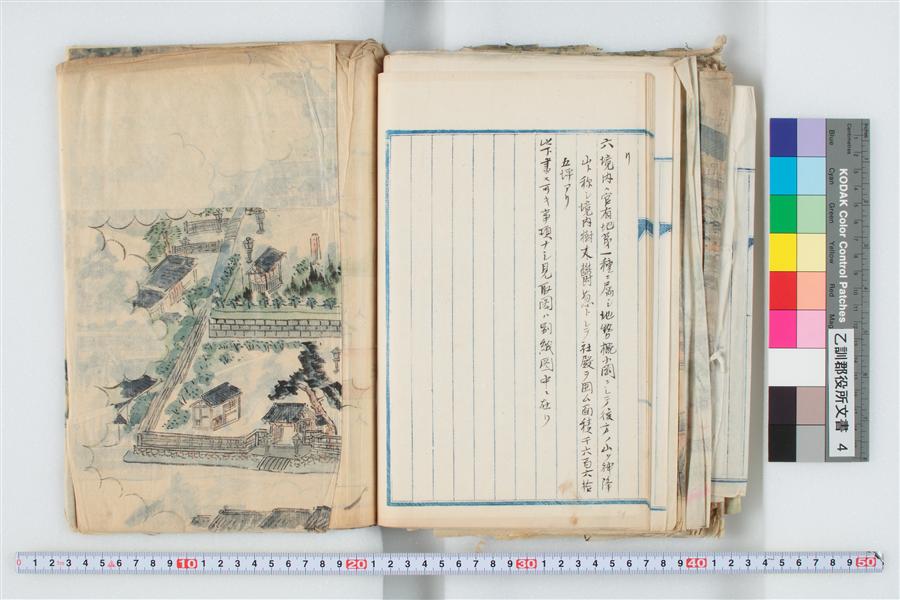 り
六 境内ハ官有地第一種ニ属シ地勢概小岡ニシテ後方ノ山ヲ神降
山ト称シ境内樹木欝蒼トシテ社殿ヲ囲ム面積千六百六拾
五坪アリ
此下書スヘキ事項ナシ見取図ハ別紙図中ニ在リ
KODAK Color Control Patches
Blue
Cyan
Green
Yellow
Red
Mag
Centimetres
Inches
乙訓郡役所文書
4
0 1 2 3 4 5 6 7 8 9 10 1 2 3 4 5 6 7 8 9 20 1 2 3 4 5 6 7 8 9 30 1 2 3 4 5 6 7 8 9 40 1 2 3 4 5 6 7 8 9 50